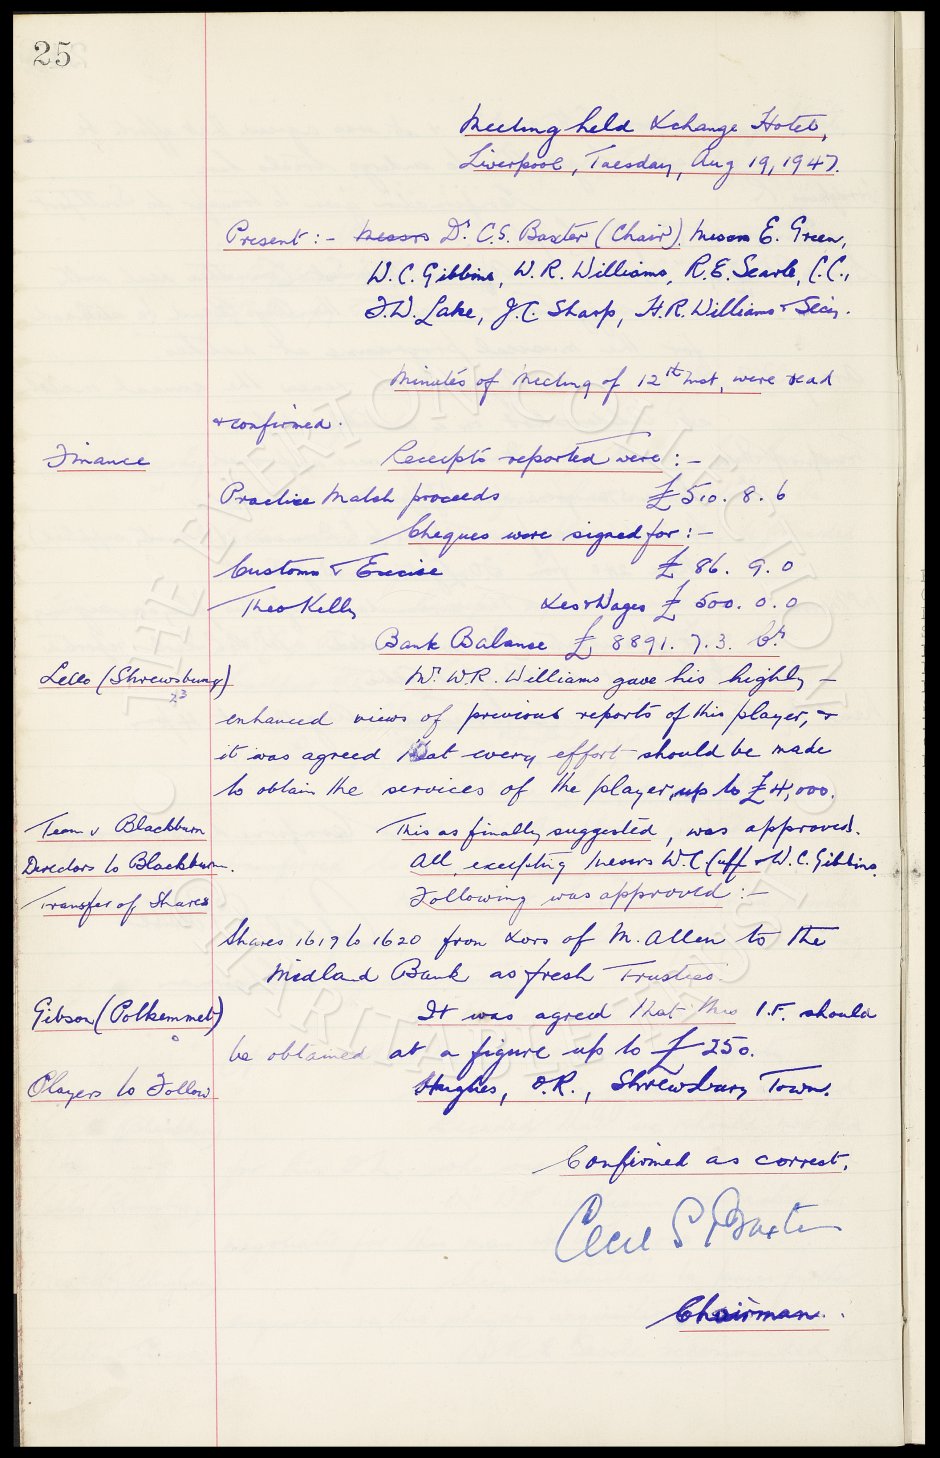 25
Meeting held Xchange Hotel,
Liverpool, Tuesday, Aug 19, 1947.
Present :- Messrs Dr. C.S. Baxter (Chair). Messrs E. Green,
W.C. Gibbins, W.R. Williams, R.E. Searle, C.C.,
F.W. Lake, J.C. Sharp, H.R. Williams & Secy.
Minutes of Meeting of 12th Inst, were read
& confirmed.
Finance Receipts reported were :-
Practice Match proceeds £510. 8. 6
Cheques were signed for :-
Customs & Excise £ 86. 9. 0
Theo Kelly Xes & Wages £ 500. 0. 0
Bank Balance £ 8891. 7. 3. Cr.
Lello (Shrewsbury) Mr. W.R. Williams gave his highly -
23
enhanced views of previous reports of this player, &
it was agreed that every effort should be made
to obtain the services of the player, up to £4,000.
Team v Blackburn This as finally suggested, was approved.
Directors to Blackburn. All, excepting Messrs W.C. Cuff & W.C. Gibbins.
Transfer of Shares Following was approved :-
Shares 1619 to 1620 from Xors of M. Allen to the
Midland Bank as fresh Trustees.
Gibson (Polkemmet) It was agreed that this I.F. should
be obtained at a figure up to £250.
Players to Follow Hughes, O.R., Shrewsbury Town.
Confirmed as correct.
Cecil S Baxter
Chairman.
THE EVERTON COLLECTION CHARITABLE TRUST